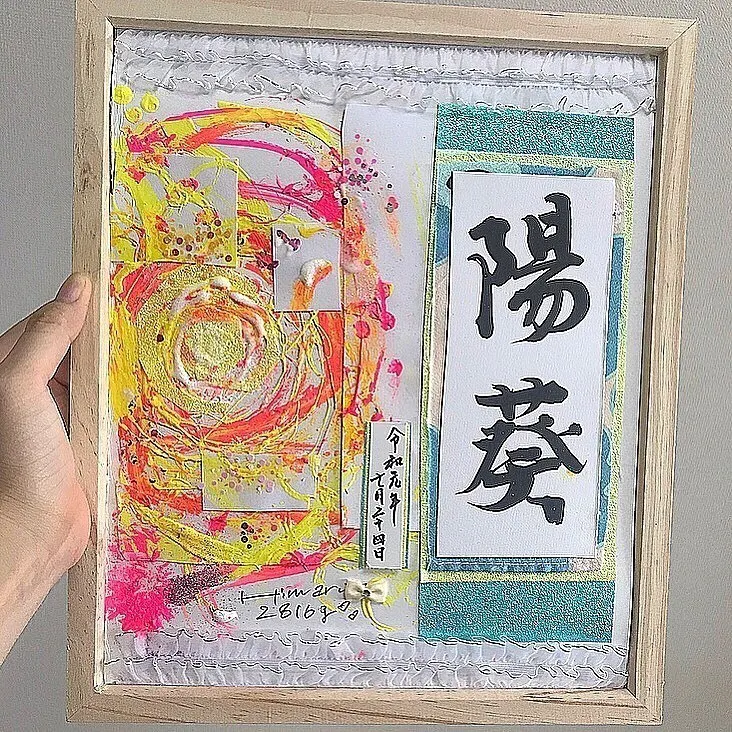 陽葵
令和元年
七月二十四日
Himari
2816g